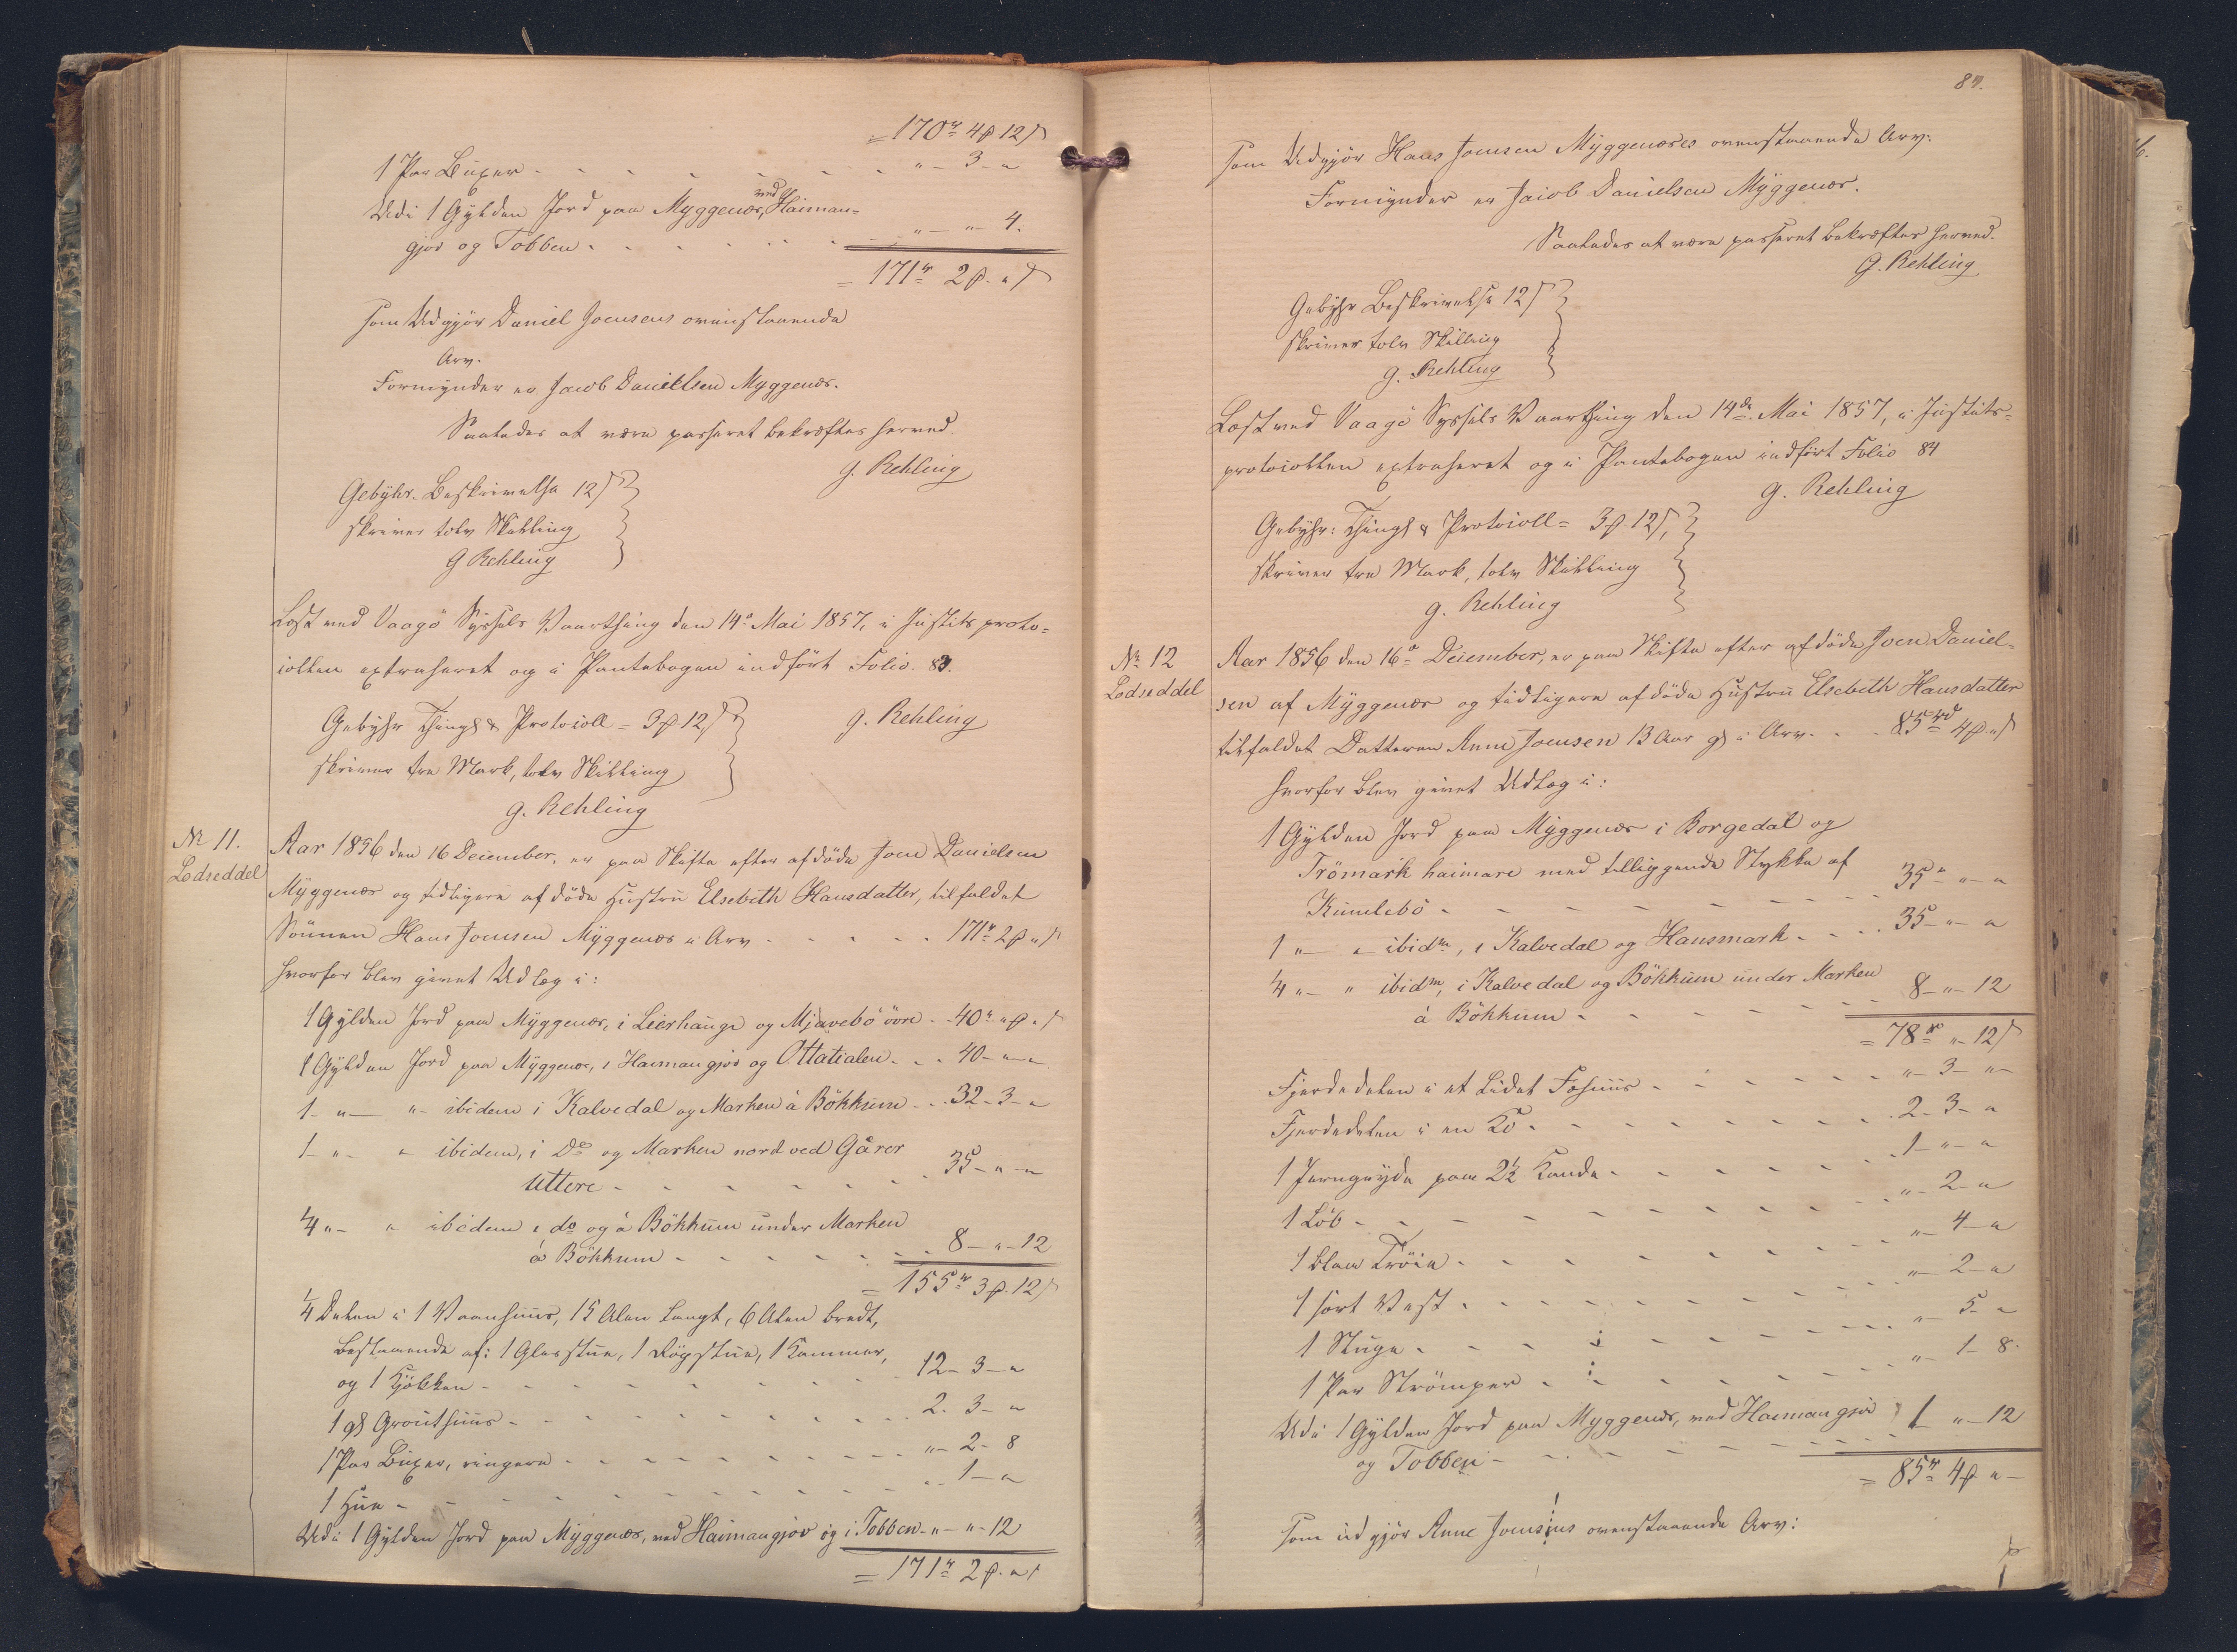 = 170 rd 4 ß 12 s
1 Par Buxer - - - - - - - - " - 3 - "
Udi 1 Gylden Jord paa Myggenæs, ved Haiman=
gjov og Tobben - - - - - - " - " - 4.
= 171 rd 2 ß. " s
som Udgjör Daniel Joensens ovenstaaende
Arv.
Formynder er Jacob Danielsen Myggenæs.
Saaledes at være passeret bekræftes herved.
G. Rehling
Gebyhr. Beskrivelse 12 s
skriver tolv Skilling
G Rehling
Læst ved Vaagö Syssels Vaarthing den 14de Mai 1857, i Justitsproto=
collen extraheret og i Pantebogen indfört Folio. 83.
Gebyhr Things & Protocoll = 3 ß 12 s
G. Rehling
skriver tre Mark, tolv Skilling
G. Rehling
No 11.
Lodseddel
Aar 1856 den 16 December, er paa Skifte efter afdöde Joen Danielsen
Myggenæs og tidligere afdöde Hustru Elsebeth Hansdatter, tilfaldet
Sönnen Hans Joensen Myggenæs i Arv - - - - - 171 rd 2 ß " s
hvorfor blev givet Udlæg i:
1 Gylden Jord paa Myggenæs, i Leerhauge og Mjavebö övre - 40 rd " ß " s
1 Gylden Jord paa Myggenæs, i Haimangjov og Ottatialen - - 40 - " - "
1 - " - " - ibidem i Kalvedal og Marken á Bökkum - - 32 - 3 - "
1 - " - " ibidem, i Do og Marken nord ved Gårer
Uttere - - - - - - - 35 - " - "
1/4 " - " ibidem i do og á Bökkum under Marken
á Bökkum - - - - - - 8 - " - 12
= 155 rd 3 ß 12 s
1/4 Delen i 1 Vaanhuus, 15 Alen langt, 6 Alen bredt,
bestaaende af: 1 Glasstue, 1 Rögstue, 1 Kammer,
og 1 Kjökken - - - - - - - 12 - 3 - "
1 gl Grouthuus - - - - - - - 2 - 3 - "
1 Par Buxer, ringere - - - - - - - " - 2 - 8
1 Hue - - - - - - - " - 1 - "
Udi 1 Gylden Jord paa Myggenæs, ved Haimangjov og i Tobben - " - " - 12
= 171 rd 2 ß. " s
84.
som Udgjör Hans Joensen Myggenæses ovenstaaende Arv.
Formynder er Jacob Danielsen Myggenæs.
Saaledes at være passeret bekræftes herved.
G. Rehling
Gebyhr Beskrivelse 12 s
skriver tolv Skilling
G. Rehling
Læst ved Vaagö Syssels Vaarthing den 14de Mai 1857, i Justits=
protocollen extraheret og i Pantebogen indfört Folio 84
G. Rehling
Gebyhr: Things & Protocoll = 3 ß. 12 s,
skriver tre Mark, tolv Skilling
G. Rehling
No 12
Lodseddel
Aar 1856 den 16de December, er paa Skifte efter afdöde Joen Daniel=
sen af Myggenæs og tidligere afdöde Hustru Elsebeth Hansdatter
tilfaldet Datteren Anne Joensen 13 Aar gl i Arv - - - 85 rd 4 ß " s
hvorfor blev givet Udlæg i:
1 Gylden Jord paa Myggenæs i Borgedal og
Trömark haimare med tilliggende Stykke af
Kumlebö - - - - - - - 35 - " - "
1 " - " ibidm, i Kalvedal og Hansmark - - - 35 - " - "
1/4 " - " ibidm, i Kalvedal og Bökkum under Marken
á Bökkum - - - - - - 8 - " - 12
= 78 rd " - 12 s
Fjerdedelen i et lidet Fæhuus - - - - - - " - 3 - " -
Fjerdedelen i en Ko - - - - - - - 2 - 3 - "
1 Jerngryde paa 2 1/2 Kande - - - - - - 1 - " - "
1 Löb - - - - - - - " - 2 - "
1 blaa Tröie - - - - - - - " - 4 - "
1 sort Vest - - - - - - - " - 2 - "
1 Stuge - - - - - - - " - 5 - "
1 Par Strömper - - - - - - " - 1 - 8.
Udi 1 Gylden Jord paa Myggenæs, ved Haimangjov 1 " - 12
og Tobben - - - - - - -
= 85 rd 4 ß " -
som udgjör Anne Joensens ovenstaaende Arv: